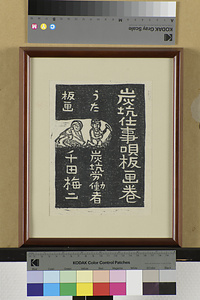 炭坑仕事唄板画巻
うた
炭坑労働者
板画
千田梅二
KODAK Gray Scale
KODAK Color Control Patches